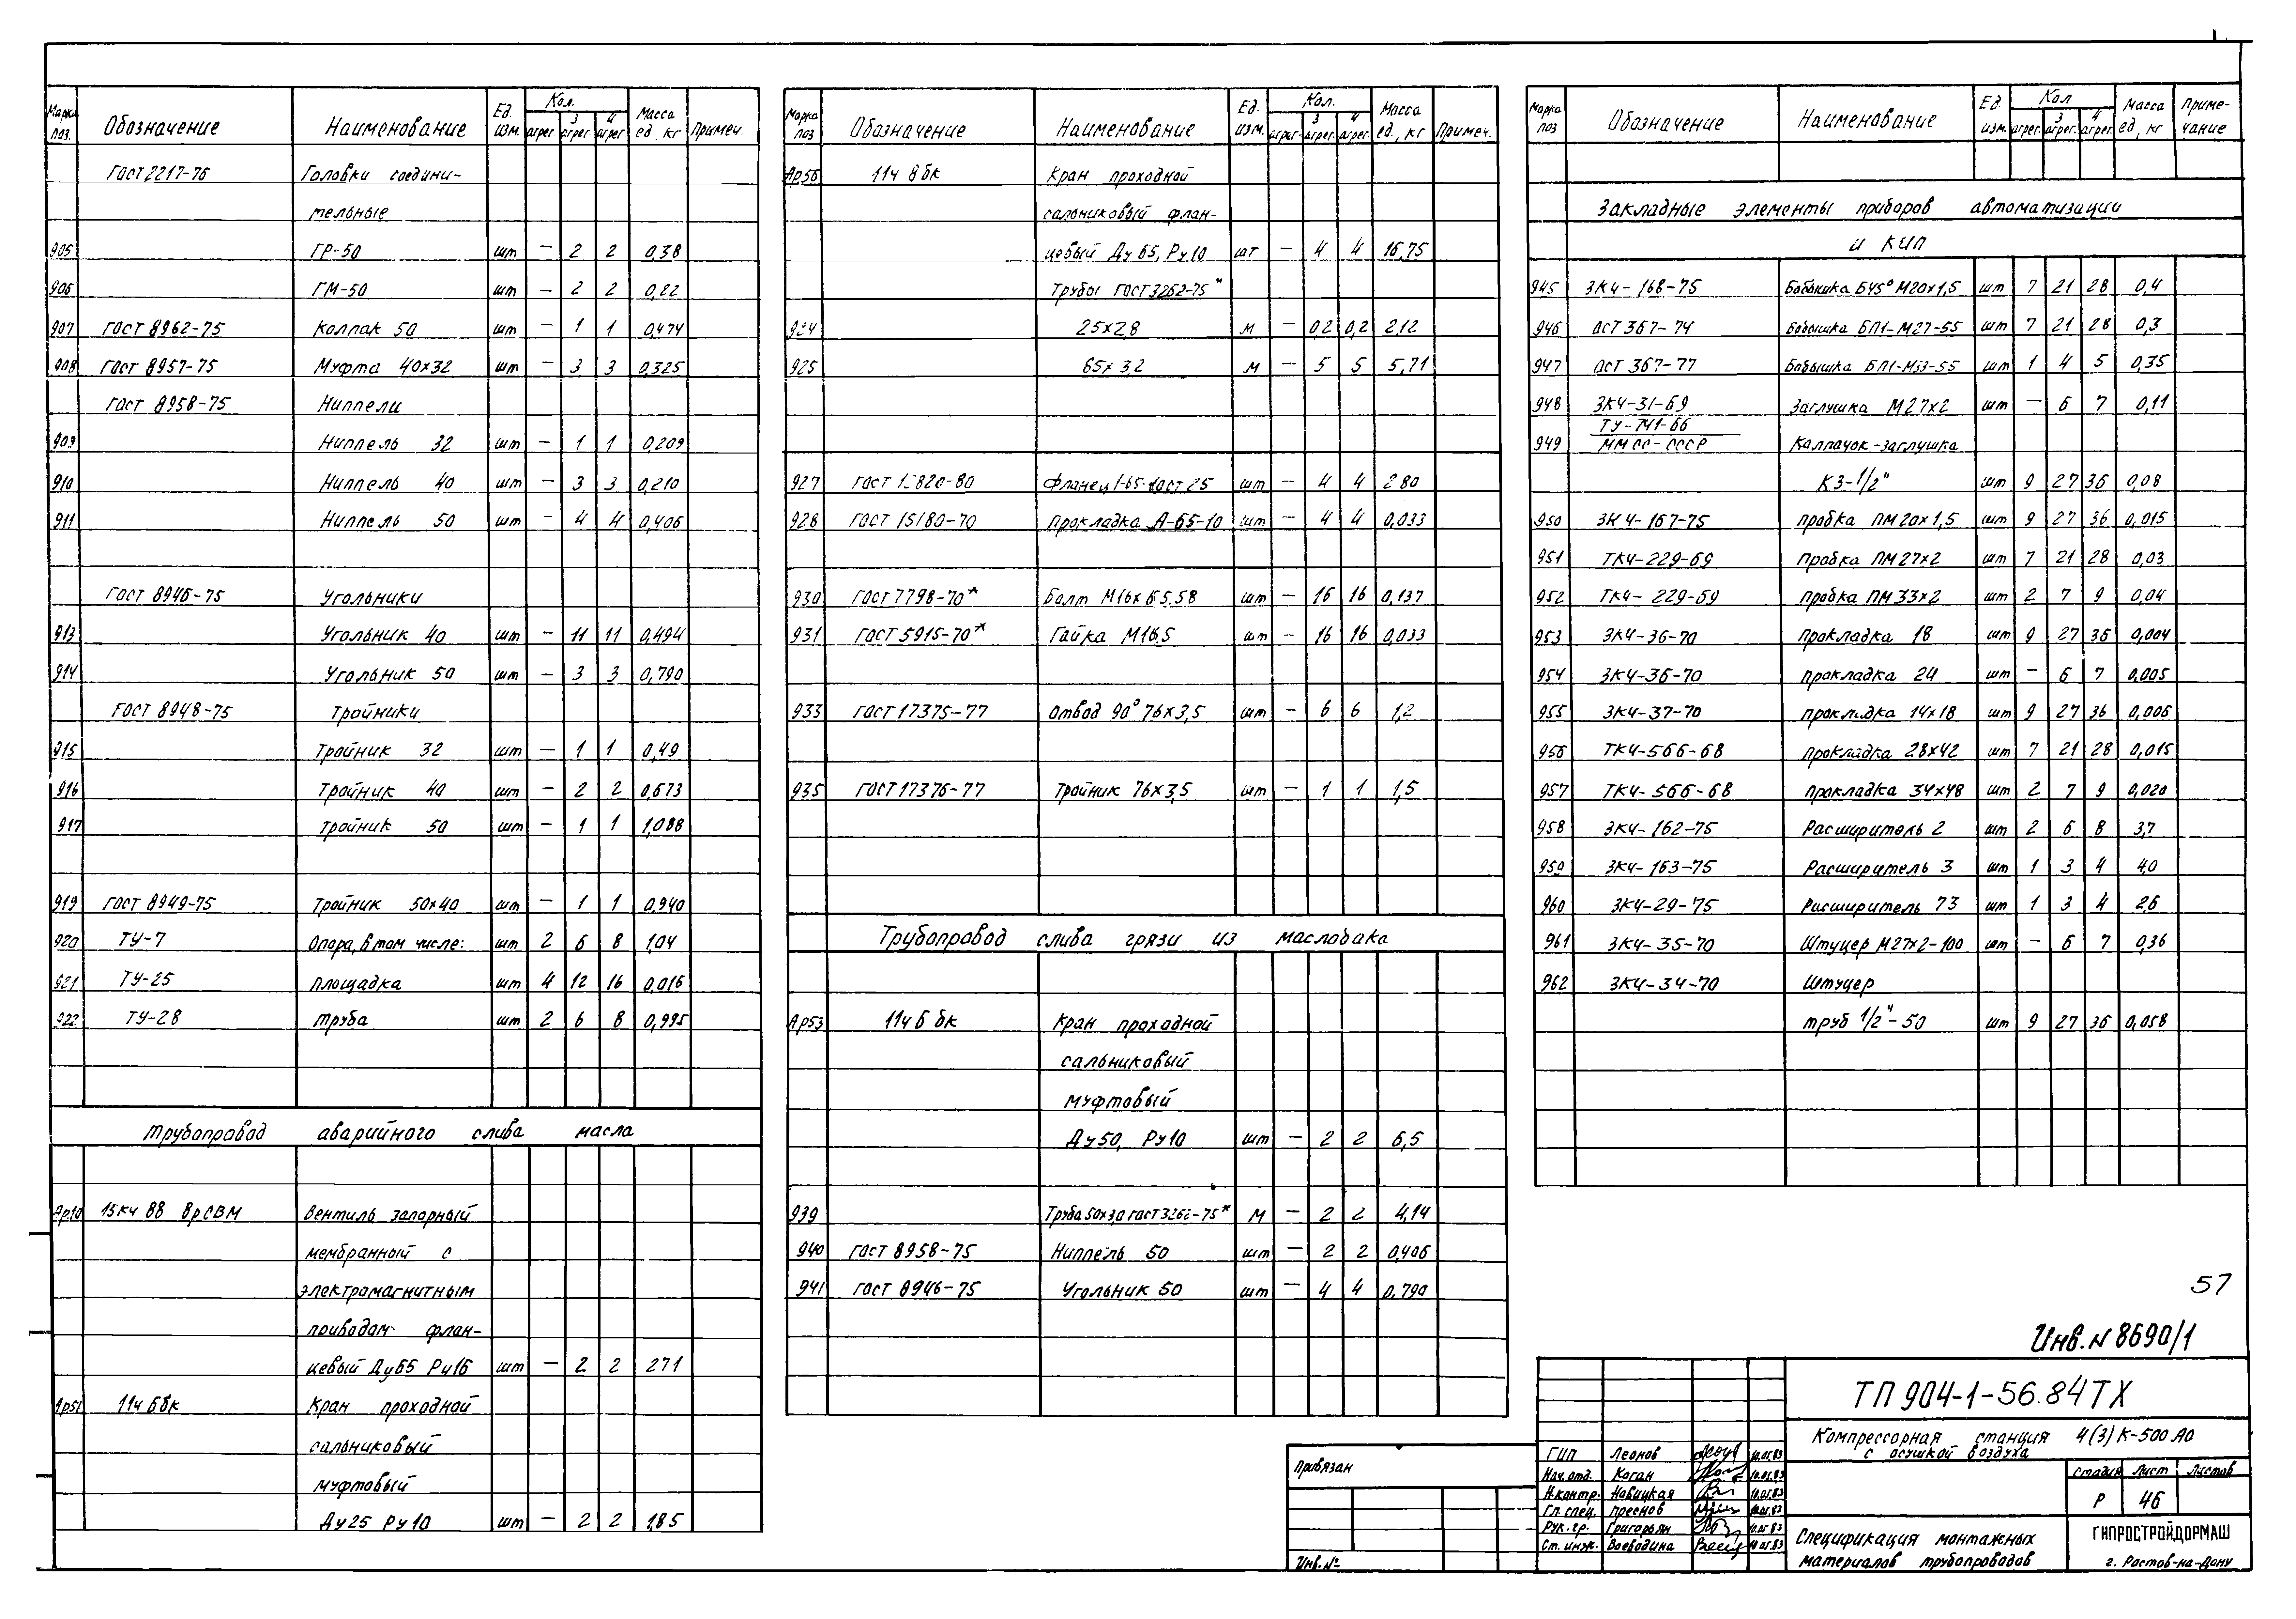 Марка поз. Обозначение Наименование Ед. изм. Кол. агрег. 3 агрег. 4 агрег. Масса ед., кг Примеч.
ГОСТ 2217-76 Головки соедини-
тельные
905 ГР-50 шт — 2 2 0,38
906 ГМ-50 шт — 2 2 0,22
907 ГОСТ 8962-75 Колпак 50 шт — 1 1 0,474
908 ГОСТ 8957-75 Муфта 40х32 шт — 3 3 0,325
ГОСТ 8958-75 Ниппели
909 Ниппель 32 шт — 1 1 0,209
910 Ниппель 40 шт — 3 3 0,210
911 Ниппель 50 шт — 4 4 0,406
ГОСТ 8946-75 Угольники
913 Угольник 40 шт — 11 11 0,494
914 Угольник 50 шт — 3 3 0,790
ГОСТ 8948-75 Тройники
915 Тройник 32 шт — 1 1 0,49
916 Тройник 40 шт — 2 2 0,673
917 Тройник 50 шт — 1 1 1,088
919 ГОСТ 8949-75 Тройник 50х40 шт — 1 1 0,940
920 ТУ-7 Опора, в том числе: шт 2 6 8 1,04
921 ТУ-25 площадка шт 4 12 16 0,016
922 ТУ-28 труба шт 2 6 8 0,995
Трубопровод аварийного слива масла
Ар10 15кч 88 8р СВМ Вентиль запорный
мембранный с
электромагнитным
приводом флан-
цевый Ду65 Ру16 шт — 2 2 27,1
Ар51 11ч 6бк Кран проходной
сальниковый
муфтовый
Ду25 Ру10 шт — 2 2 1,85
Марка поз. Обозначение Наименование Ед. изм. Кол. агрег. 3 агрег. 4 агрег. Масса ед., кг Примеч.
Ар56 11ч 8бк Кран проходной
сальниковый флан-
цевый Ду 65, Ру10 шт — 4 4 16,75
Трубы ГОСТ 3262-75*
924 25х2,8 м — 0,2 0,2 2,12
925 65х3,2 м — 5 5 5,71
927 ГОСТ 12820-80 Фланец 1-65-10 ст 25 шт — 4 4 2,80
928 ГОСТ 15180-70 Прокладка А-65-10 шт — 4 4 0,033
930 ГОСТ 7798-70* Болт М16х65.58 шт — 16 16 0,137
931 ГОСТ 5915-70* Гайка М16.5 шт — 16 16 0,033
933 ГОСТ 17375-77 Отвод 90° 76х3,5 шт — 6 6 1,2
935 ГОСТ 17376-77 Тройник 76х3,5 шт — 1 1 1,5
Трубопровод слива грязи из маслобака
Ар53 11ч 6 бк Кран проходной
сальниковый
муфтовый
Ду50, Ру10 шт — 2 2 6,5
939 Труба 50х3,0 ГОСТ 3262-75* м — 2 2 4,14
940 ГОСТ 8958-75 Ниппель 50 шт — 2 2 0,406
941 ГОСТ 8946-75 Угольник 50 шт — 4 4 0,790
Марка поз. Обозначение Наименование Ед. изм. Кол. агрег. 3 агрег. 4 агрег. Масса ед., кг Приме-
чание
Закладные элементы приборов автоматизации
и КИП
945 ЗК4-168-75 Бобышка Б45° М20х1,5 шт 7 21 28 0,4
946 ОСТ 367-74 Бобышка БП1-М27-55 шт 7 21 28 0,3
947 ОСТ 367-77 Бобышка БП1-М33-55 шт 1 4 5 0,35
948 ЗК4-31-69 Заглушка М27х2 шт — 6 7 0,11
949 ТУ-741-66
ММСС-СССР Колпачок-заглушка
КЗ-1/2" шт 9 27 36 0,08
950 ЗК4-167-75 Пробка ПМ20х1,5 шт 9 27 36 0,015
951 ТК4-229-69 Пробка ПМ27х2 шт 7 21 28 0,03
952 ТК4-229-69 Пробка ПМ33х2 шт 2 7 9 0,04
953 ЗК4-36-70 Прокладка 18 шт 9 27 36 0,004
954 ЗК4-36-70 Прокладка 24 шт — 6 7 0,005
955 ЗК4-37-70 Прокладка 14х18 шт 9 27 36 0,006
956 ТК4-566-68 Прокладка 28х42 шт 7 21 28 0,015
957 ТК4-566-68 Прокладка 34х48 шт 2 7 9 0,020
958 ЗК4-162-75 Расширитель 2 шт 2 6 8 3,7
959 ЗК4-163-75 Расширитель 3 шт 1 3 4 4,0
960 ЗК4-29-75 Расширитель 73 шт 1 3 4 2,6
961 ЗК4-35-70 Штуцер М27х2-100 шт — 6 7 0,36
962 ЗК4-34-70 Штуцер
труб 1/2"-50 шт 9 27 36 0,058
57
Инв. N 8690/1
Привязан
Инв. №
ГИП Леонов 10.05.83
Нач. отд. Коган 10.05.83
Н.контр. Новицкая 10.05.83
Гл. спец. Преснов 10.05.83
Рук. гр. Григорьян 10.05.83
Ст. инж. Воеводина 10.05.83
ТП 904-1-56.84 ТХ
Компрессорная станция 4(3) К-500 АО
с осушкой воздуха
Стадия Лист Листов
Р 46
Спецификация монтажных
материалов трубопроводов
ГИПРОСТРОЙДОРМАШ
г. Ростов-на-Дону